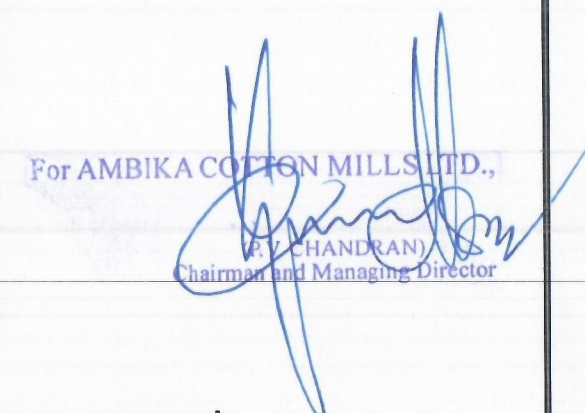 For AMBIKA COTTON MILLS LTD.,
(P.V. CHANDRAN)
Chairman and Managing Director